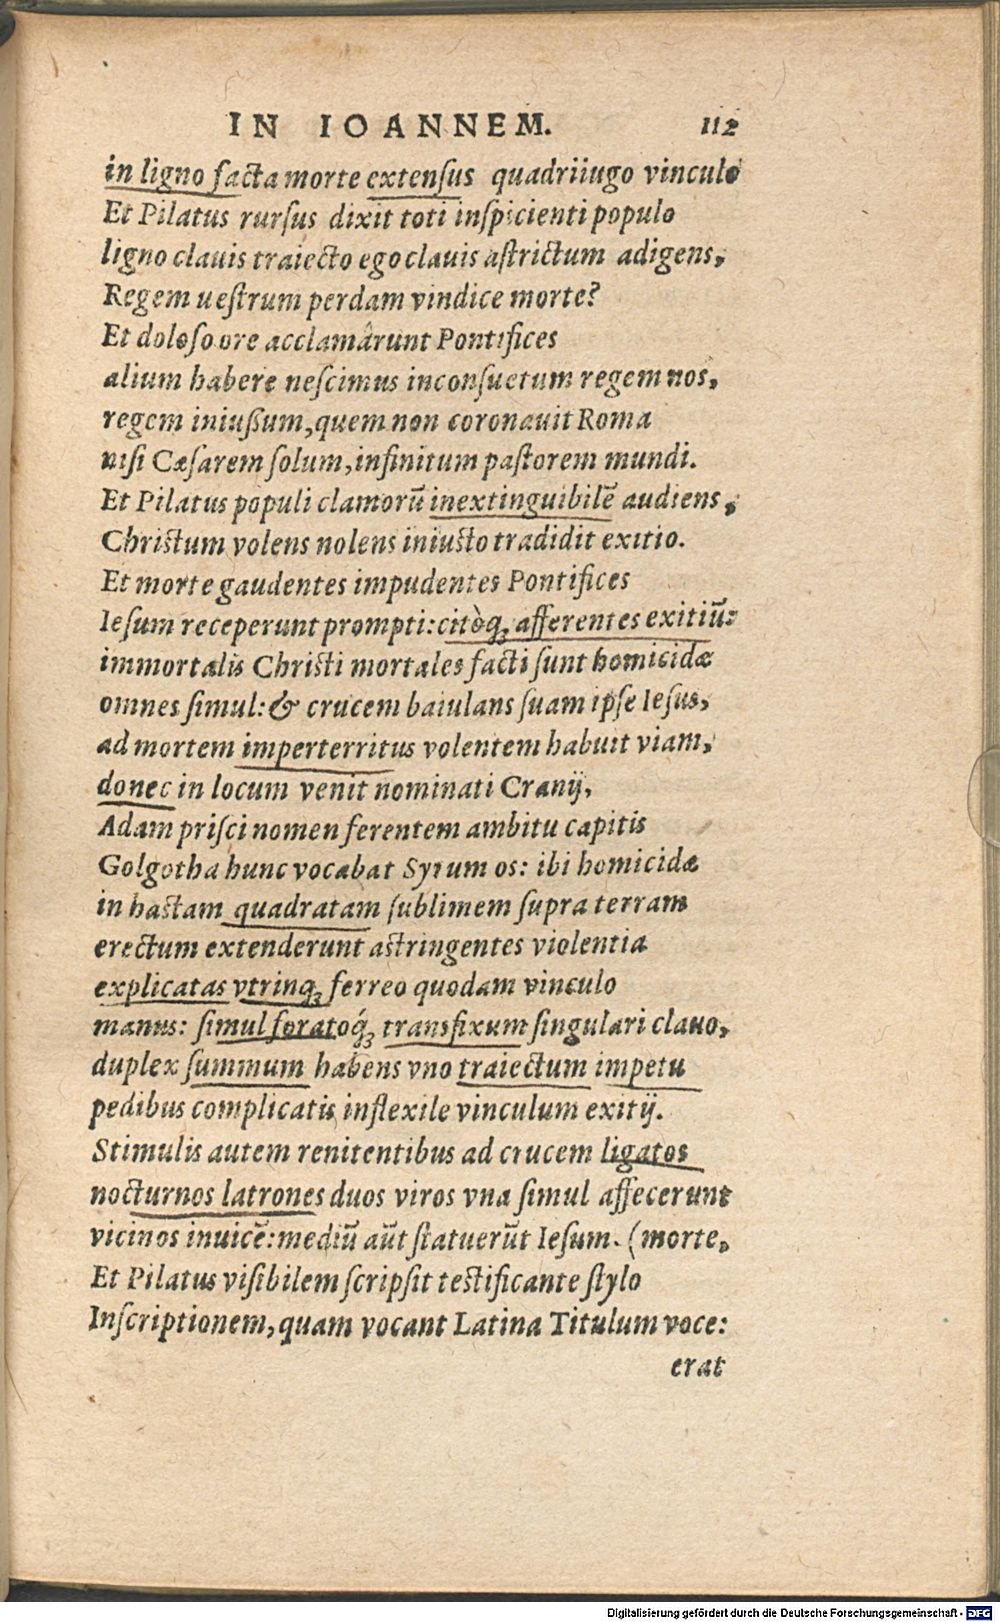 IN IOANNEM. 112
in ligno facta morte extensus quadriiugo vinculo
Et Pilatus rursus dixit toti inspicienti populo
ligno clauis traiecto ego clauis astrictum adigens,
Regem uestrum perdam vindice morte?
Et doloso ore acclamârunt Pontifices
alium habere nescimus inconsuetum regem nos,
regem iniussum, quem non coronauit Roma
nisi Cæsarem solum, infinitum pastorem mundi.
Et Pilatus populi clamorū inextinguibilē audiens,
Christum volens nolens iniusto tradidit exitio.
Et morte gaudentes impudentes Pontifices
Iesum receperunt prompti: citòq; afferentes exitiū:
immortalis Christi mortales facti sunt homicidæ
omnes simul: & crucem baiulans suam ipse Iesus,
ad mortem imperterritus volentem habuit viam,
donec in locum venit nominati Cranij,
Adam prisci nomen ferentem ambitu capitis
Golgotha hunc vocabat Syrum os: ibi homicidæ
in hastam quadratam sublimem supra terram
erectum extenderunt astringentes violentia
explicatas vtrinq; ferreo quodam vinculo
manus: simul foratoq́; transfixum singulari clauo,
duplex summum habens vno traiectum impetu
pedibus complicatis inflexile vinculum exitij.
Stimulis autem renitentibus ad crucem ligatos
nocturnos latrones duos viros vna simul affecerunt
vicinos inuicē: mediū aūt statuerūt Iesum. (morte,
Et Pilatus visibilem scripsit testificante stylo
Inscriptionem, quam vocant Latina Titulum voce:
erat
Digitalisierung gefördert durch die Deutsche Forschungsgemeinschaft - DFG